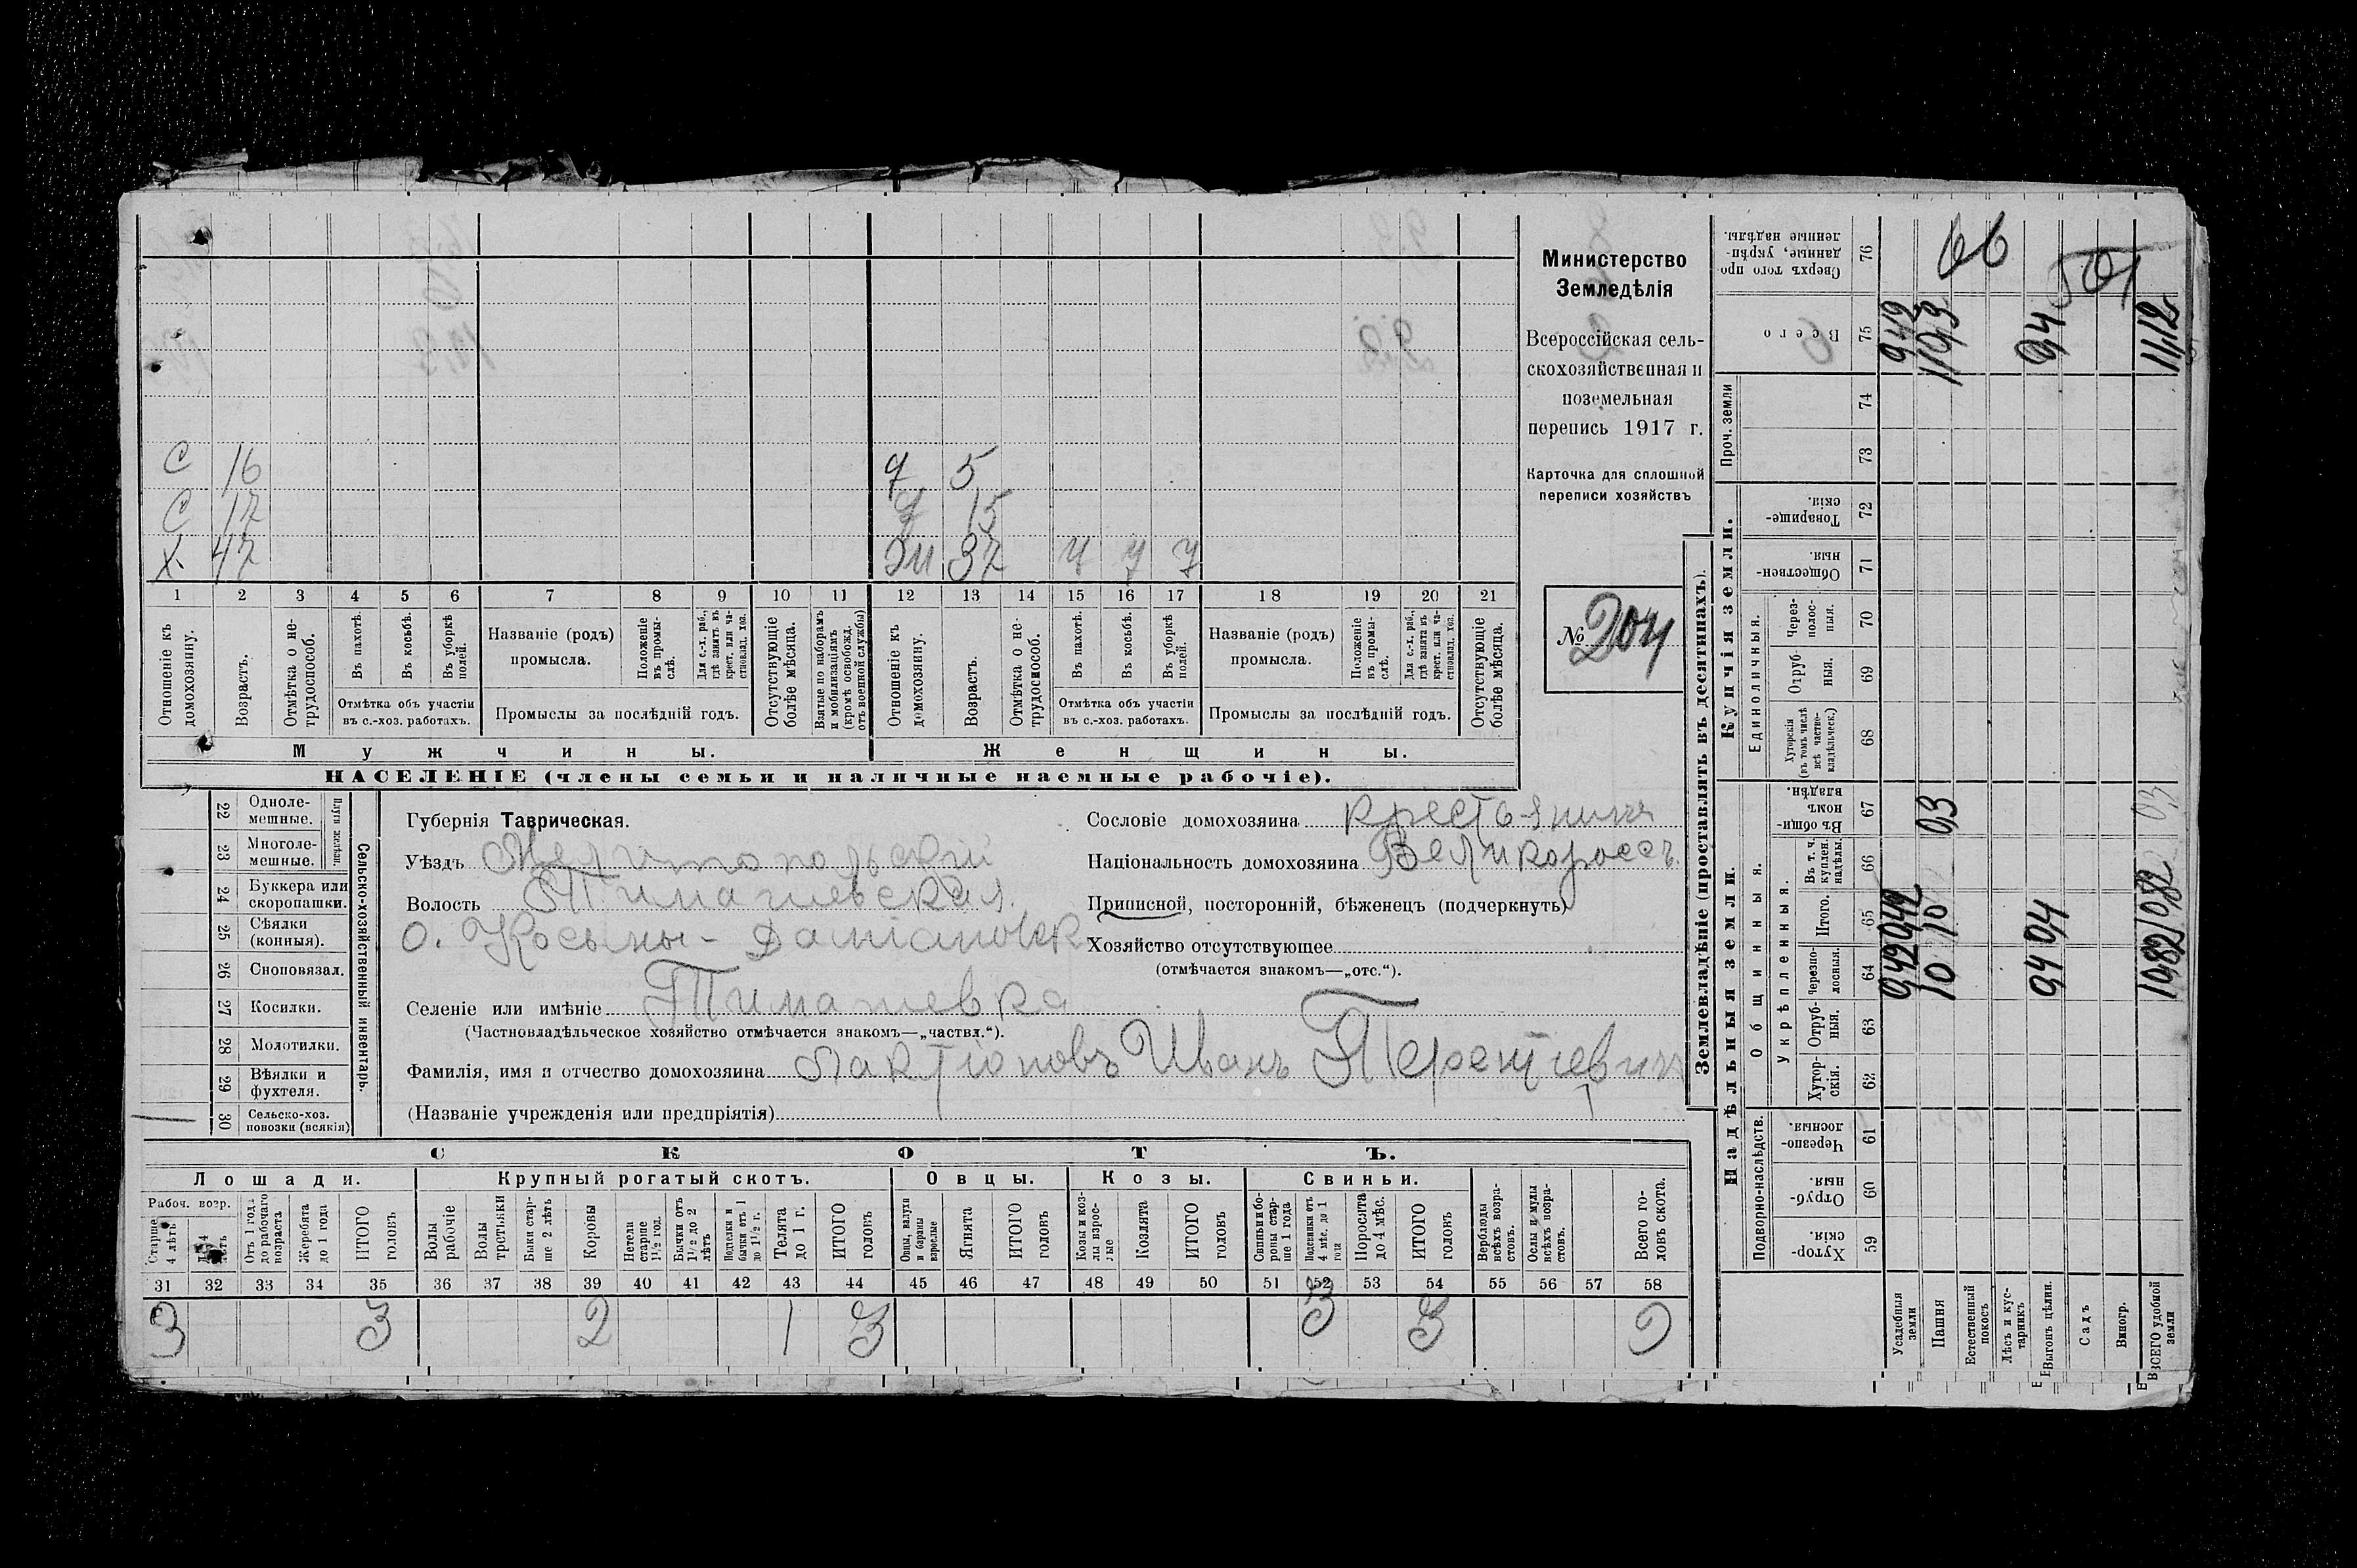 С 16
С 17
Х 47
д 5
д 15
Ж 37 ч ч ч
1 2 3 4 5 6 7 8 9 10 11 12 13 14 15 16 17 18 19 20 21
Отношеніе къ домохозяину.
Возрастъ.
Отмѣтка о нетрудоспособ.
Въ пахотѣ.
Въ косьбѣ.
Въ уборкѣ полей.
Отмѣтка объ участіи въ с.-хоз. работахъ.
Названіе (родъ) промысла.
Положеніе въ промыслѣ.
Для с.-х. раб., гдѣ занятъ въ крест. или частновлад. хоз.
Промыслы за послѣдній годъ.
Отсутствующіе болѣе мѣсяца.
Взятые по наборамъ и мобилизаціямъ (кромѣ освобожд. отъ военной службы)
Отношеніе къ домохозяину.
Возрастъ.
Отмѣтка о нетрудоспособ.
Въ пахотѣ.
Въ косьбѣ.
Въ уборкѣ полей.
Отмѣтка объ участіи въ с.-хоз. работахъ.
Названіе (родъ) промысла.
Положеніе въ промыслѣ.
Для с.-х. раб., гдѣ занята въ крест. или частновлад. хоз.
Промыслы за послѣдній годъ.
Отсутствующіе болѣе мѣсяца.
Мужчины.
Женщины.
НАСЕЛЕНІЕ (члены семьи и наличные наемные рабочіе).
Министерство
Земледѣлія
Всероссійская сель-
скохозяйственная и
поземельная
перепись 1917 г.
Карточка для сплошной
переписи хозяйствъ
№ 204
22 Одноле-мешные.
23 Многоле-мешные.
Плуги желѣзн.
24 Буккера или скоропашки.
25 Сѣялки (конныя).
26 Сноповязал.
27 Косилки.
28 Молотилки.
29 Вѣялки и фухтеля.
30 Сельско-хоз. повозки (всякія)
Сельско-хозяйственный инвентарь.
Губернія Таврическая.
Уѣздъ Мелитопольскій
Волость Тимашевская.
О. Косьмы-Даміановск
Селеніе или имѣніе Тимашевка
(Частновладѣльческое хозяйство отмѣчается знакомъ—„частвл.“).
Фамилія, имя и отчество домохозяина Лактіоновъ Иванъ Терентіевичъ
(Названіе учрежденія или предпріятія)
Сословіе домохозяина крестьянинъ
Національность домохозяина Великороссъ.
Приписной, посторонній, бѣженецъ (подчеркнуть)
Хозяйство отсутствующее
(отмѣчается знакомъ—„отс.“).
СКОТЪ.
Лошади.
Крупный рогатый скотъ.
Овцы.
Козы.
Свиньи.
Рабоч. возр.
Старше 4 лѣтъ
До 4 лѣтъ
Отъ 1 года до рабочаго возраста
Жеребята до 1 года
ИТОГО головъ
Волы рабочіе
Волы третьяки
Быки старше 2 лѣтъ
Коровы
Нетели старше 1½ год.
Бычки отъ 1½ до 2 лѣтъ
Подтелки и бычки отъ 1 до 1½ г.
Телята до 1 г.
ИТОГО головъ
Овцы, валухи и бараны взрослые
Ягнята
ИТОГО головъ
Козы и козлы взрослые
Козлята
ИТОГО головъ
Свиньи и боровы старше 1 года
Подсвинки отъ 4 мѣс. до 1 года
Поросята до 4 мѣс.
ИТОГО головъ
Верблюды всѣхъ возрастовъ.
Ослы и мулы всѣхъ возрастовъ.
Всего головъ скота.
31 32 33 34 35 36 37 38 39 40 41 42 43 44 45 46 47 48 49 50 51 52 53 54 55 56 57 58
3 3 2 1 3 3 3 9
Землевладѣніе (проставлять въ десятинахъ).
Надѣльныя земли.
Купчія земли.
Проч. земли
Подворно-наслѣдств.
Общинныя.
Укрѣпленныя.
Единоличныя.
59 Хуторскія.
60 Отрубныя.
61 Черезполосныя.
62 Хуторскія.
63 Отрубныя.
64 Черезполосныя.
65 Итого.
66 Въ т. ч. куплен. надѣлы.
67 Въ общинномъ владѣн.
68 Хуторскія (въ томъ числѣ всѣ частновладѣльческ.)
69 Отрубныя.
70 Черезполосныя.
71 Общественныя.
72 Товарищескія.
73
74
75 Всего
76 Сверхъ того проданные, укрѣпленные надѣлы.
Усадебныя земли 0,42 0,42 0,42
Пашня 10 10 0,3
Естественный покосъ
Лѣсъ и кустарникъ
Выгонъ цѣлин. 0,4 0,4 0,4
Садъ
Виногр.
ВСЕГО удобной земли 10,82 10,82 0,3 11,12